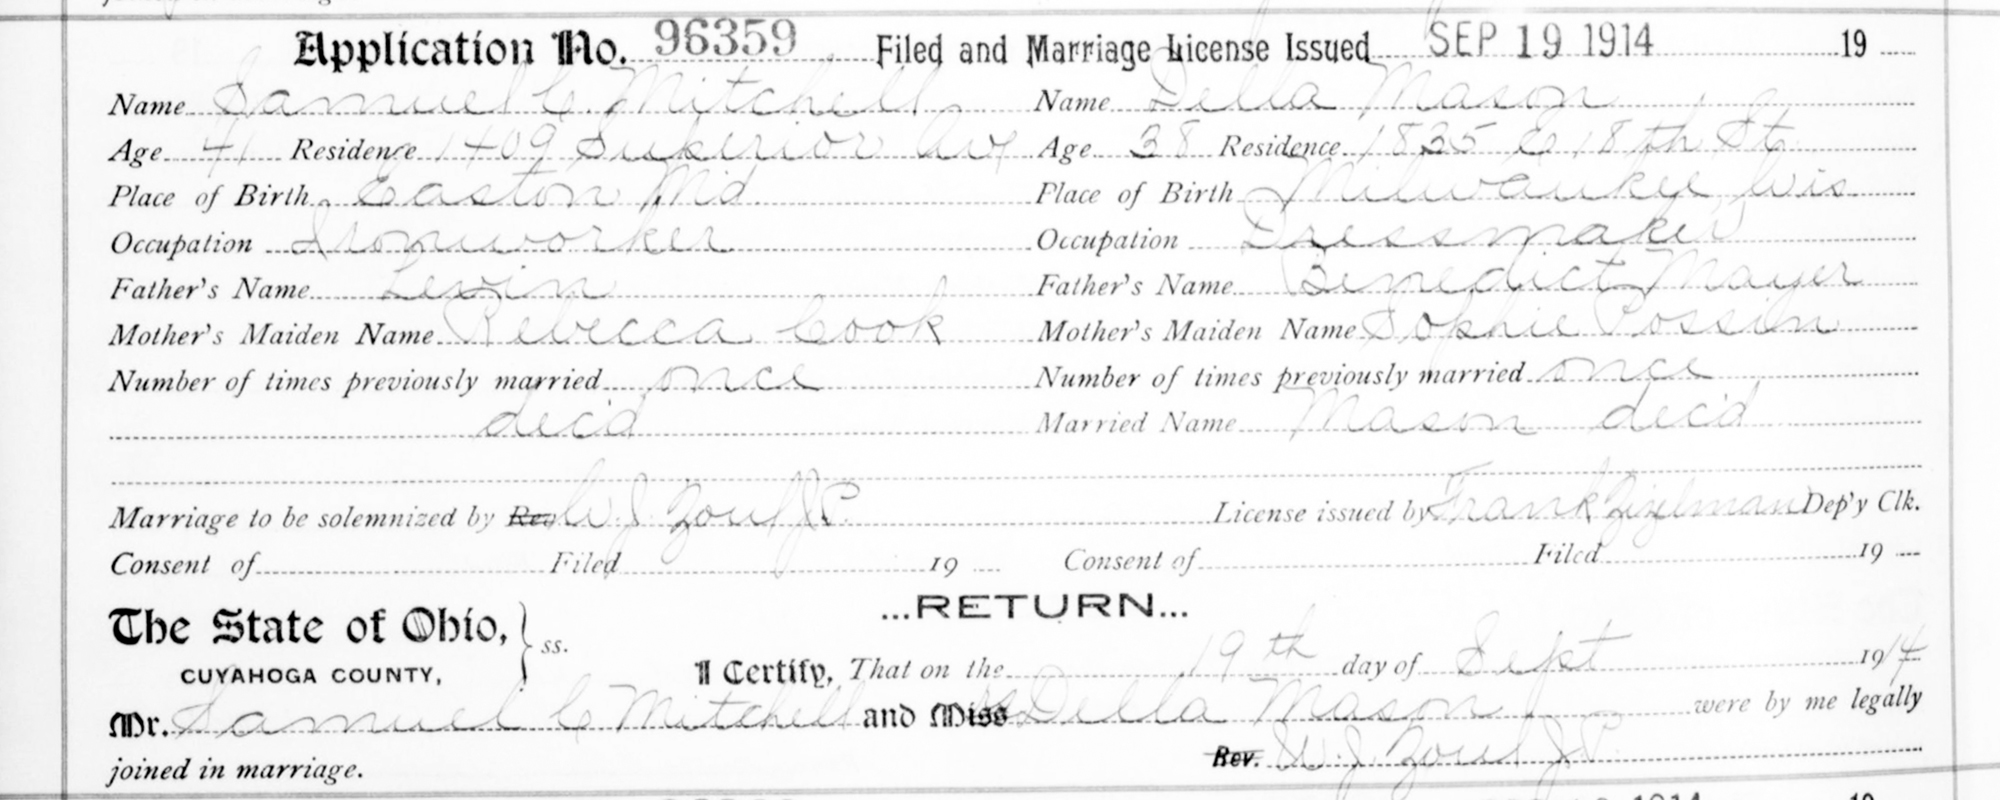 Application No. 96359 Filed and Marriage License Issued SEP 19 1914 19
Name Samuel C. Mitchell Name Della Mason
Age 41 Residence 1409 Superior Av Age 38 Residence 1835 E 18th St.
Place of Birth Easton Md Place of Birth Milwaukee Wis
Occupation Ironworker Occupation Dressmaker
Father's Name Levin Father's Name Benedict Mayer
Mother's Maiden Name Rebecca Cook Mother's Maiden Name Sophie Possin
Number of times previously married once Number of times previously married once
dec'd Married Name Mason dec'd
Marriage to be solemnized by Rev W. J. Zoul J.P. License issued by Frank Dep'y Clk.
Consent of Filed 19 Consent of Filed 19
...RETURN...
The State of Ohio, ss.
CUYAHOGA COUNTY,
I Certify, That on the 19th day of Sept 1914
Mr. Samuel C Mitchell and Miss Della Mason were by me legally
joined in marriage. Rev. W. J. Zoul J.P.